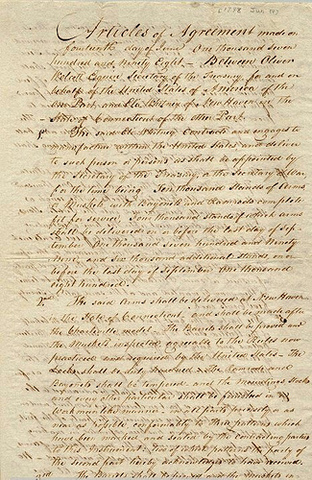 [1798 Jun 14]
Articles of Agreement made on
fourteenth day of June One thousand seven
hundred and Ninety Eight,— Between Oliver
Wolcott Esquire, Secretary of the Treasury for and on
behalf of the United States of America, of the
One Part, and Eli Whitney of New Haven, in the
State of Connecticut of the other Part.
1st The said Eli Whitney Contracts and engages to
within the United States and deliver
to such person or persons as shall be appointed by
the Secretary of the Treasury, or the Secretary of War
for the time being, Ten thousand Stands of Arms
or Muskets with Bayonets and Ramrods complete
fit for service. Four thousand stands of which arms
shall be delivered on or before the last day of Sep-
tember One thousand seven hundred and Ninety
Nine, and six thousand additional stands on or
before the last day of September One thousand
eight hundred.
2nd The said Arms shall be delivered at New Haven
in the State of Connecticut, and shall be made after
the Charleville model. The Barrels shall be proved and
the Muskets inspected agreeable to the Rules now
practiced and required by the United States. The
Locks shall be The Ramrods and
Bayonets shall be tempered and the
and every other particular shall be finished in a
workmanlike manner. In all parts precisely or as
near as possible conformably to three patterns which
have been marked and sealed by the contracting parties
to this Instrument; two of which patterns the party of
the second part hereby acknowledges to have received.
3rd The Barrels shall be proved and the Muskets in-